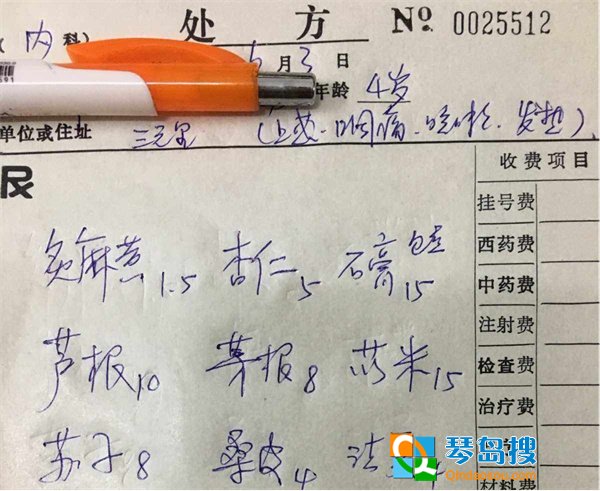 (内科) 处方 № 0025512
5月3日
年龄 4岁
单位或住址 三元里 (上感、咽痛、咳嗽、发热)
收费项目
挂号费
西药费
中药费
注射费
检查费
治疗费
材料费
R
炙麻黄1.5 杏仁5 石膏15
芦根10 茅根8 苡米15
苏子8 桑皮4 法
琴岛搜